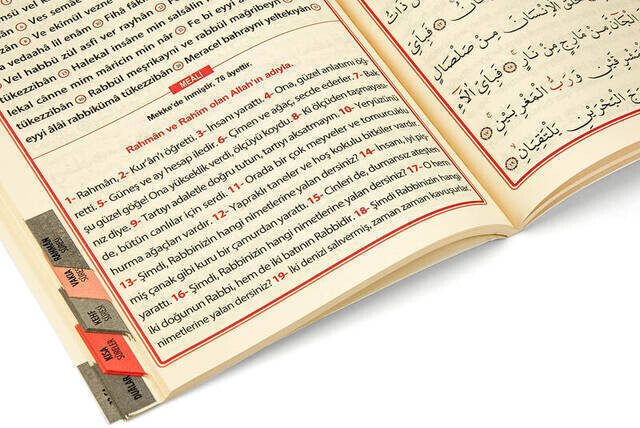 Ves semae
Ve ekimül vezne
vel hayrân
Fe bi eyyi
Ve vedaaha lil enam
Vel habbu zül asfi ver reyhân
Halekal insâne min salsâlin
lekal cânne mim mâricin min nâr
Fe bi eyyi
tükezzibân
Rabbül meşrikayni ve rabbül mağribeyn
eyyi âlâi rabbikümâ tükezzibân
Meracel bahrayni yeltekıyân
MEALİ
Mekke'de inmiştir. 78 âyettir.
Rahmân ve Rahîm olan Allah'ın adıyla.
1- Rahmân, 2- Kur'ân'ı öğretti. 3- İnsanı yarattı. 4- Ona, güzel anlatımı öğ-
retti. 5- Güneş ve ay hesap iledir. 6- Çimen ve ağaç, secde ederler. 7- Bak
şu güzel göğe! Ona yükseklik verdi, ölçüyü koydu. 8- Ki ölçüden taşmayası-
nız diye. 9- Tartıyı adaletle doğru tutun, tartıyı aksatmayın. 10- Yeryüzünü
de, bütün canlılar için serdi. 11- Orada bir çok meyveler ve tomurcuklu
hurma ağaçları vardır. 12- Yapraklı taneler ve hoş kokulu bitkiler vardır.
13- Şimdi, Rabbinizin hangi nimetlerine yalan dersiniz? 14- İnsanı, iyi piş-
miş çanak gibi kuru bir çamurdan yarattı. 15- Cinleri de, dumansız ateşten
yarattı. 16- Şimdi, Rabbinizin hangi nimetlerine yalan dersiniz? 17- O hem
iki doğunun Rabbi, hem de iki batının Rabbidir. 18- Şimdi Rabbinizin hangi
nimetlerine yalan dersiniz? 19- İki denizi salıvermiş, zaman zaman kavuşurlar.
RAHMÂN
SÛRESİ
VAKIA
SÛRESİ
KEHF
SÛRESİ
KISA
SÛRELER
DUALAR
الْاِنْسَانَ مِنْ صَلْصَالٍ
مِنْ مَارِجٍ مِنْ نَارٍ
فَبِاَيِّ اٰلَٓاءِ
وَرَبُّ الْمَغْرِبَيْنِ
الْبَحْرَيْنِ يَلْتَقِيَانِ